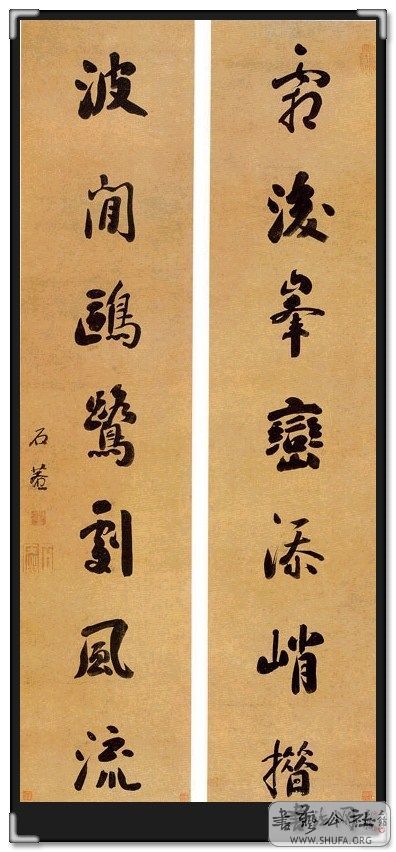 霜後峯巒添峭
波間鷗鷺劇風流
石菴
書藝公社
WWW.SHUFA.ORG